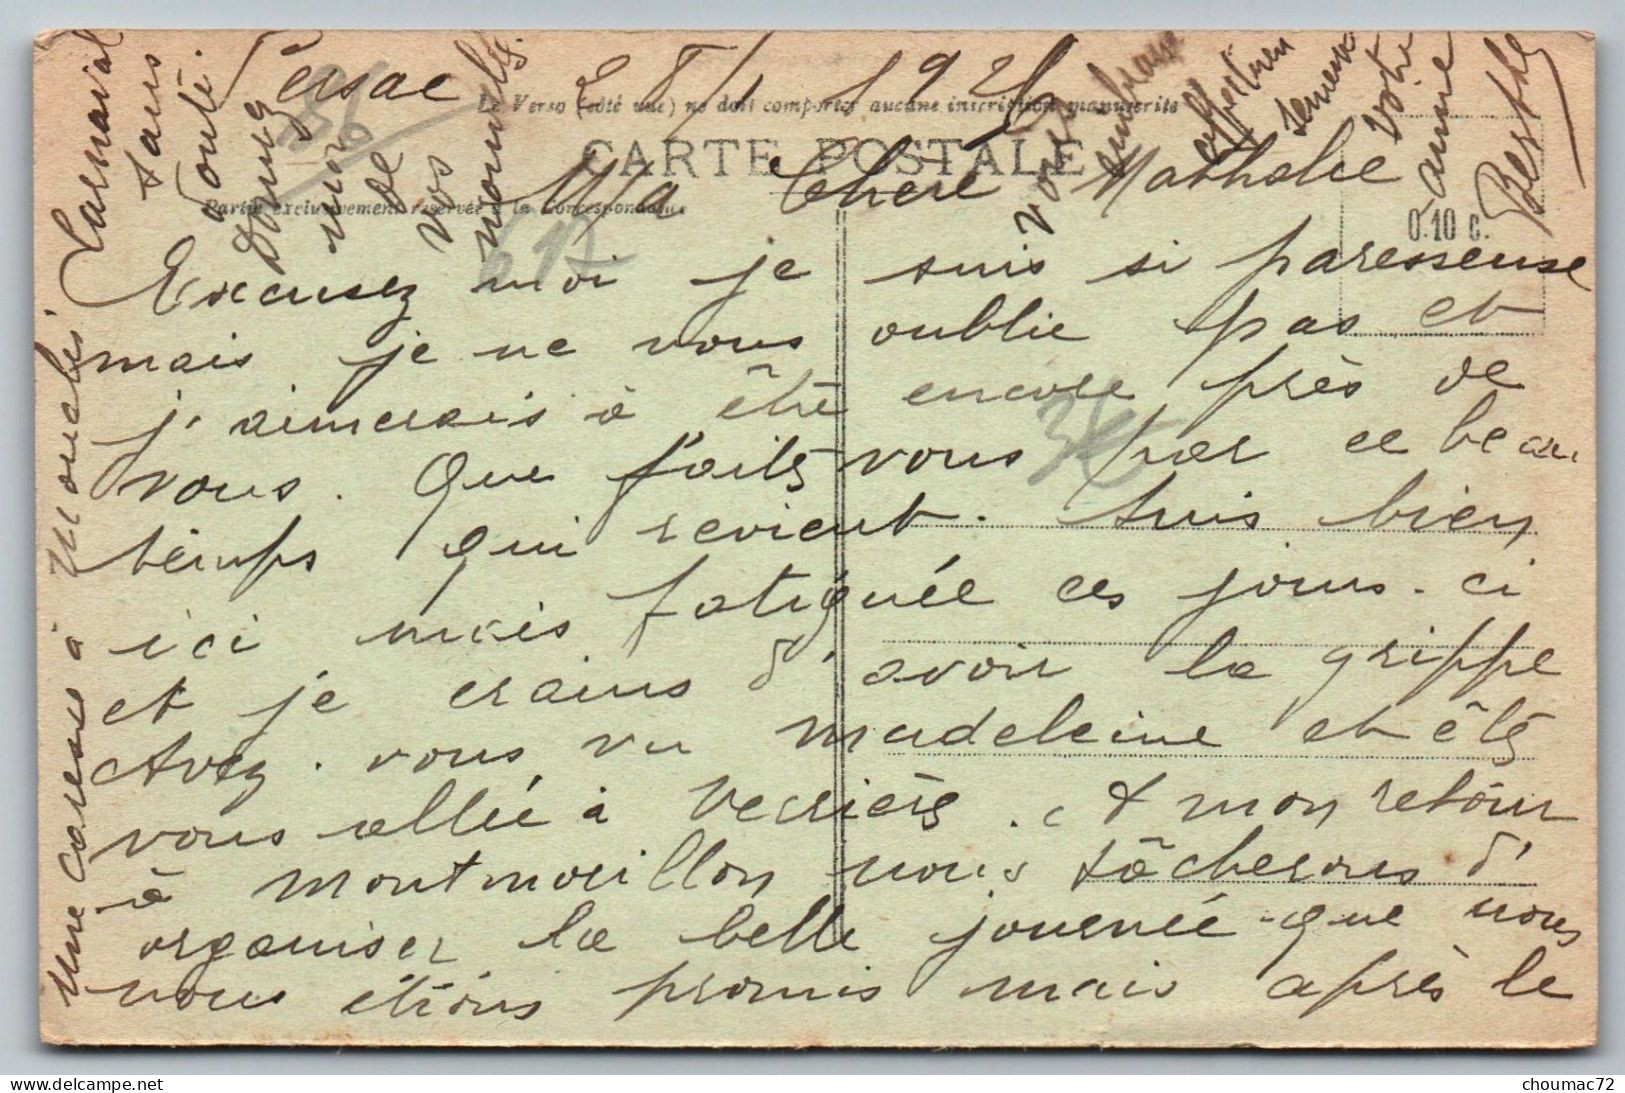 Persac 28/1 1926
Le Verso (côté vue) ne doit comporter aucune inscription manuscrite
CARTE POSTALE
Partie exclusivement réservée à la Correspondance
0.10 c.
Ma Chère Mathilde
Excusez moi je suis si paresseuse
mais je ne vous oublie pas et
j'aimerais à être encore près de
vous. Que faits vous par ce beau
temps qui revient. suis bien
ici mais fatiguée ces jours-ci
et je crains d'avoir la grippe
Avez-vous vu Madeleine et êts
vous allée à Verrières. A mon retour
à Montmorillon nous tâcherons d'
organiser la belle journée que nous
nous étions promis mais après le
Carnaval
sans
doute.
Donnez
moi
de
vos
nouvelles.
Vous embrasse
affectueu
sement
Votre
amie
Berthe
Une caresse à